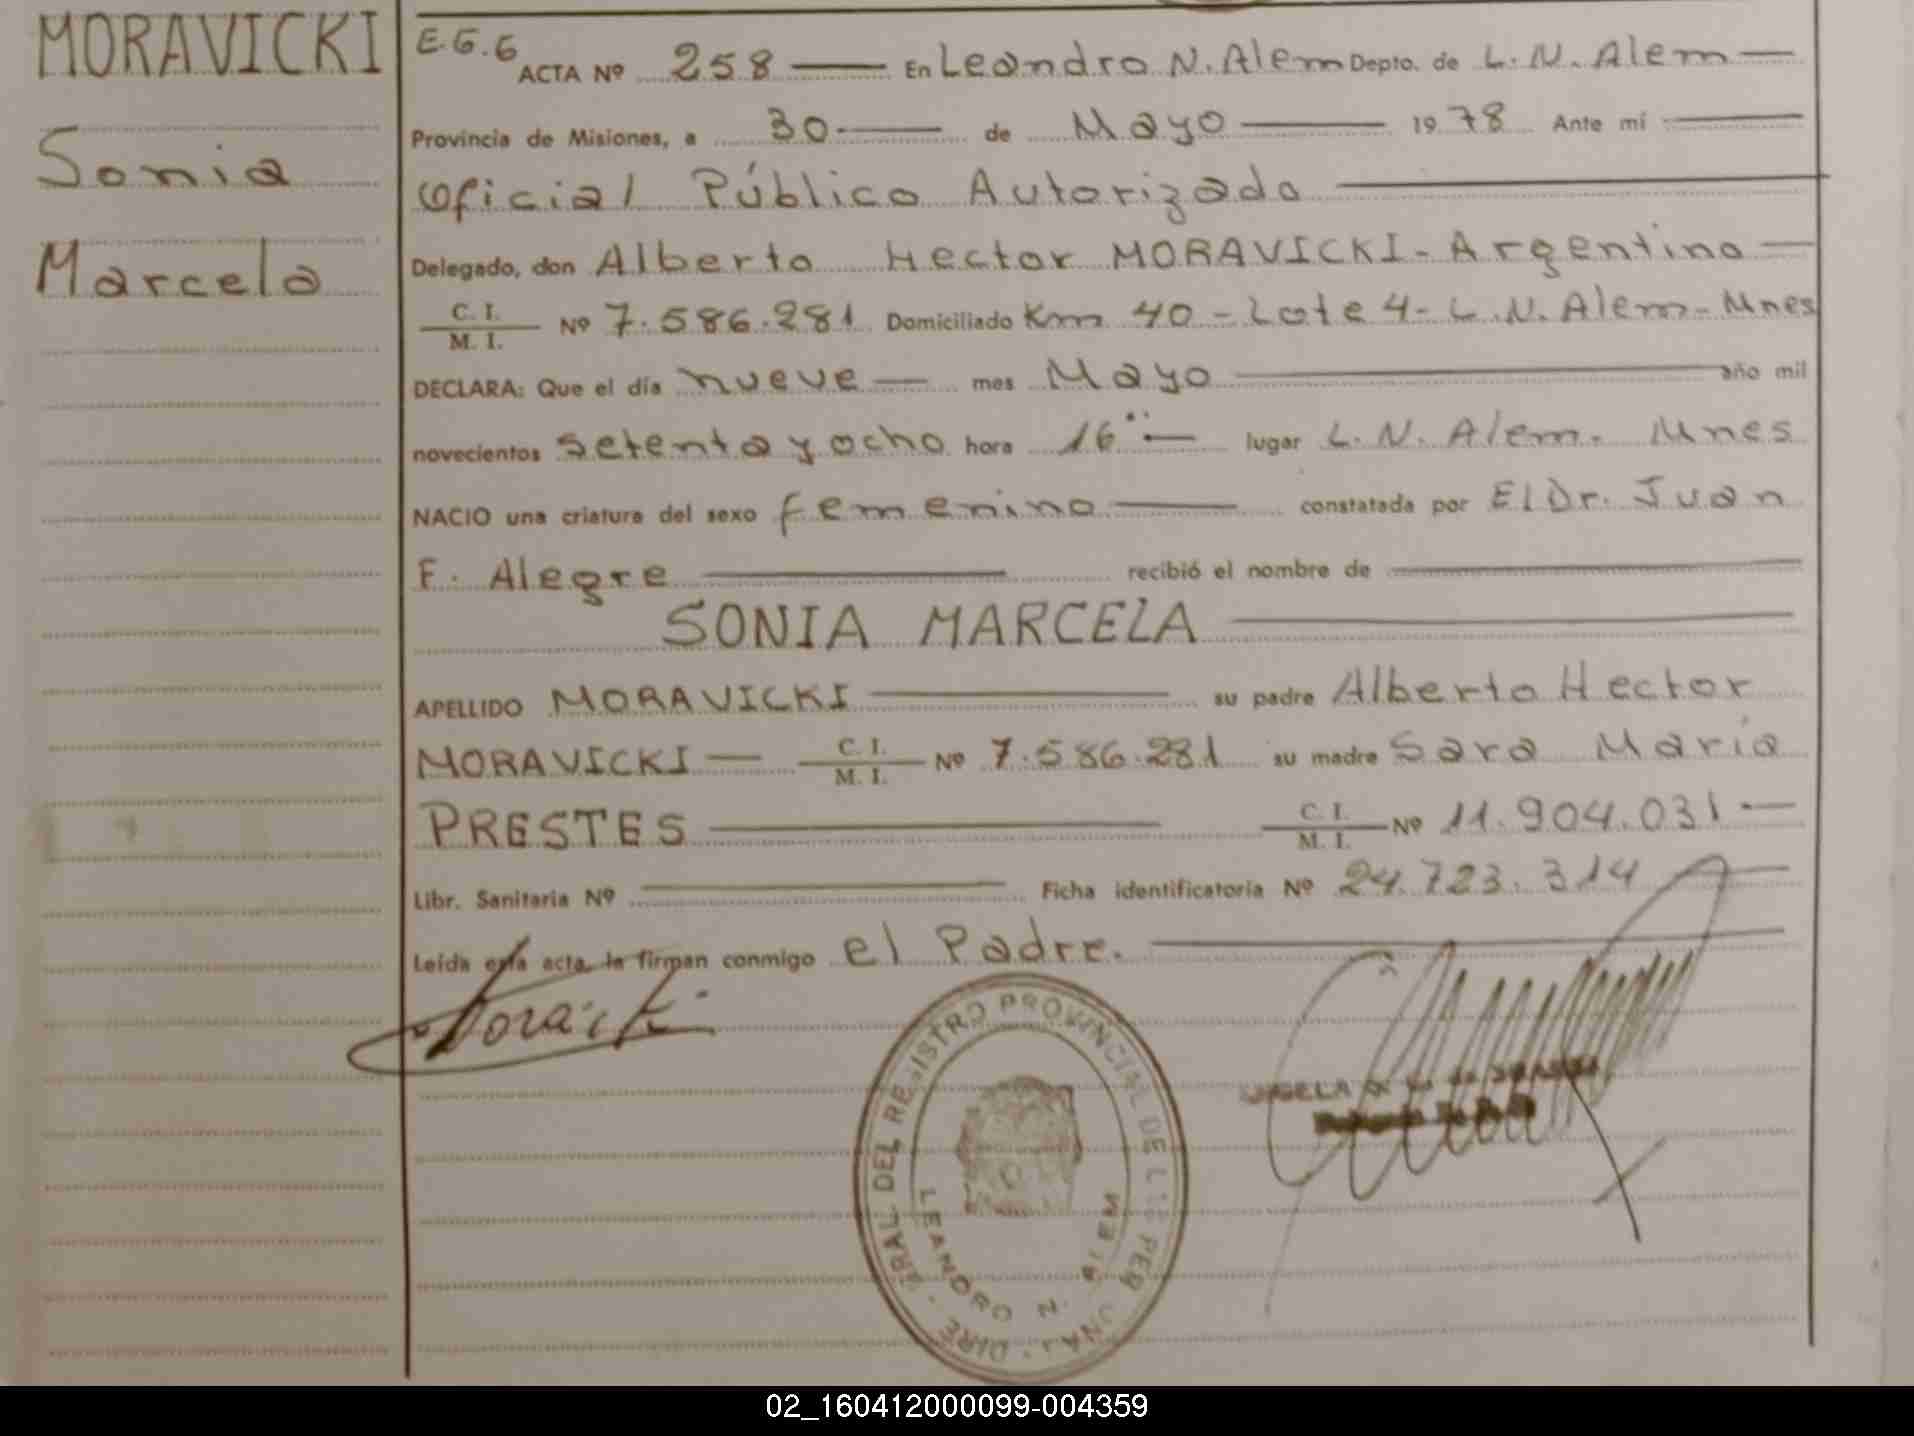 MORAVICKI
Sonia
Marcela
E.G.6
ACTA Nº 258 — En Leandro N. Alem Depto. de L. N. Alem —
Provincia de Misiones, a 30 — de Mayo — 1978 Ante mí —
Oficial Público Autorizado —
Delegado, don Alberto Hector MORAVICKI - Argentino —
C. I.
M. I. Nº 7.586.281 Domiciliado Km 40 - Lote 4 - L. N. Alem - Mnes
DECLARA: Que el día nueve — mes Mayo — año mil
novecientos setenta y ocho hora 16 — lugar L. N. Alem. Mnes
NACIO una criatura del sexo femenino — constatada por El Dr. Juan
F. Alegre — recibió el nombre de —
SONIA MARCELA —
APELLIDO MORAVICKI — su padre Alberto Hector
MORAVICKI — C. I.
M. I. Nº 7.586.281 su madre Sara María
PRESTES — C. I.
M. I. Nº 11.904.031 —
Libr. Sanitaria Nº — Ficha identificatoria Nº 24.723.314
Leída esta acta, la firman conmigo el Padre. —
REGISTRO PROVINCIAL DE
LEANDRO N. ALEM
02_160412000099-004359